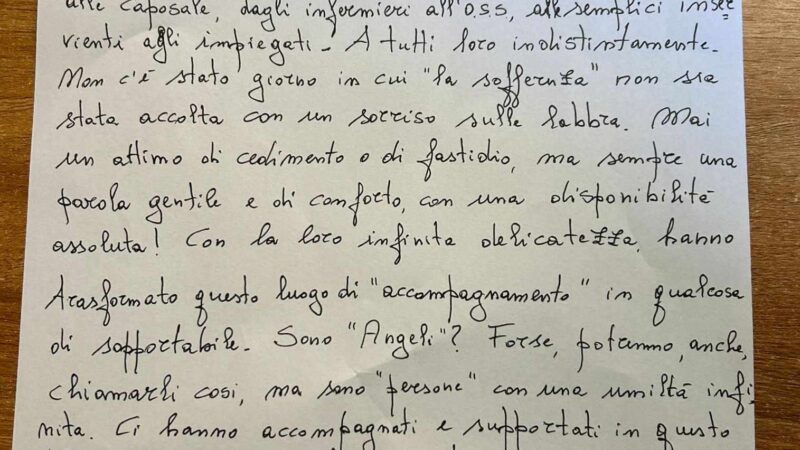 alle Caposale, dagli infermieri all'O.S.S, alle semplici inser
vienti agli impiegati. A tutti loro indistintamente.
Non c'è stato giorno in cui "la sofferenza" non sia
stata accolta con un sorriso sulle labbra. Mai
un attimo di cedimento o di fastidio, ma sempre una
parola gentile e di conforto, con una disponibilità
assoluta! Con la loro infinita delicatezza, hanno
trasformato questo luogo di "accompagnamento" in qualcosa
di sopportabile. Sono "Angeli"? Forse, potranno, anche,
chiamarli così, ma sono "persone" con una umiltà infi
nita. Ci hanno accompagnati e supportati in questo